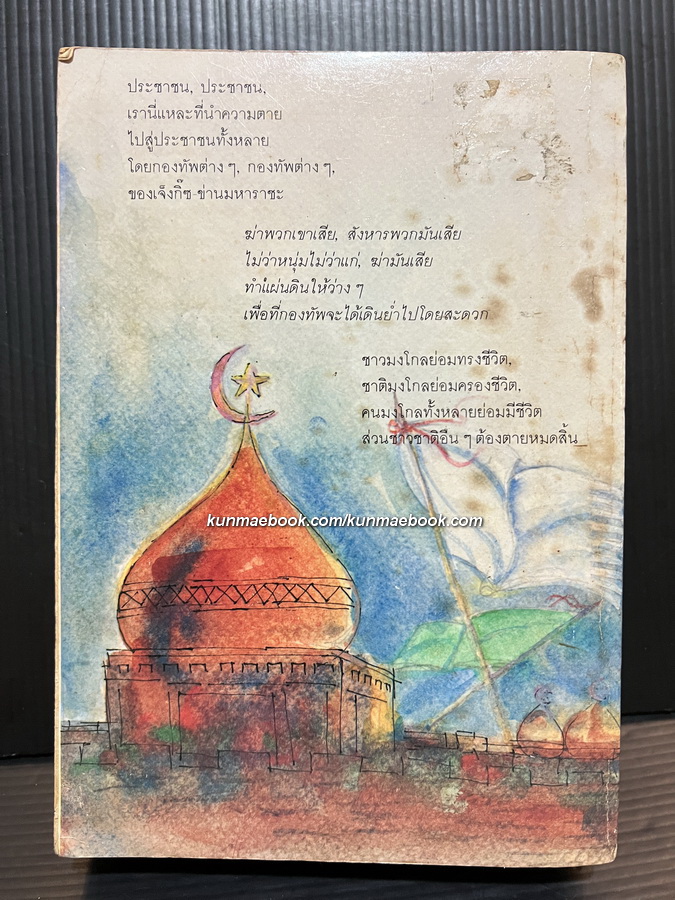 ประชาชน, ประชาชน,
เรานี่แหละที่นำความตาย
ไปสู่ประชาชนทั้งหลาย
โดยกองทัพต่าง ๆ, กองทัพต่าง ๆ,
ของเจ็งกิ๊ซ-ข่านมหาราชะ
ฆ่าพวกเขาเสีย, สังหารพวกมันเสีย
ไม่ว่าหนุ่มไม่ว่าแก่, ฆ่ามันเสีย
ทำแผ่นดินให้ว่าง ๆ
เพื่อที่กองทัพจะได้เดินย่ำไปโดยสะดวก
ชาวมงโกลย่อมทรงชีวิต,
ชาติมงโกลย่อมครองชีวิต,
คนมงโกลทั้งหลายย่อมมีชีวิต
ส่วนชาวชาติอื่น ๆ ต้องตายหมดสิ้น
kunmaebook.com/kunmaebook.com